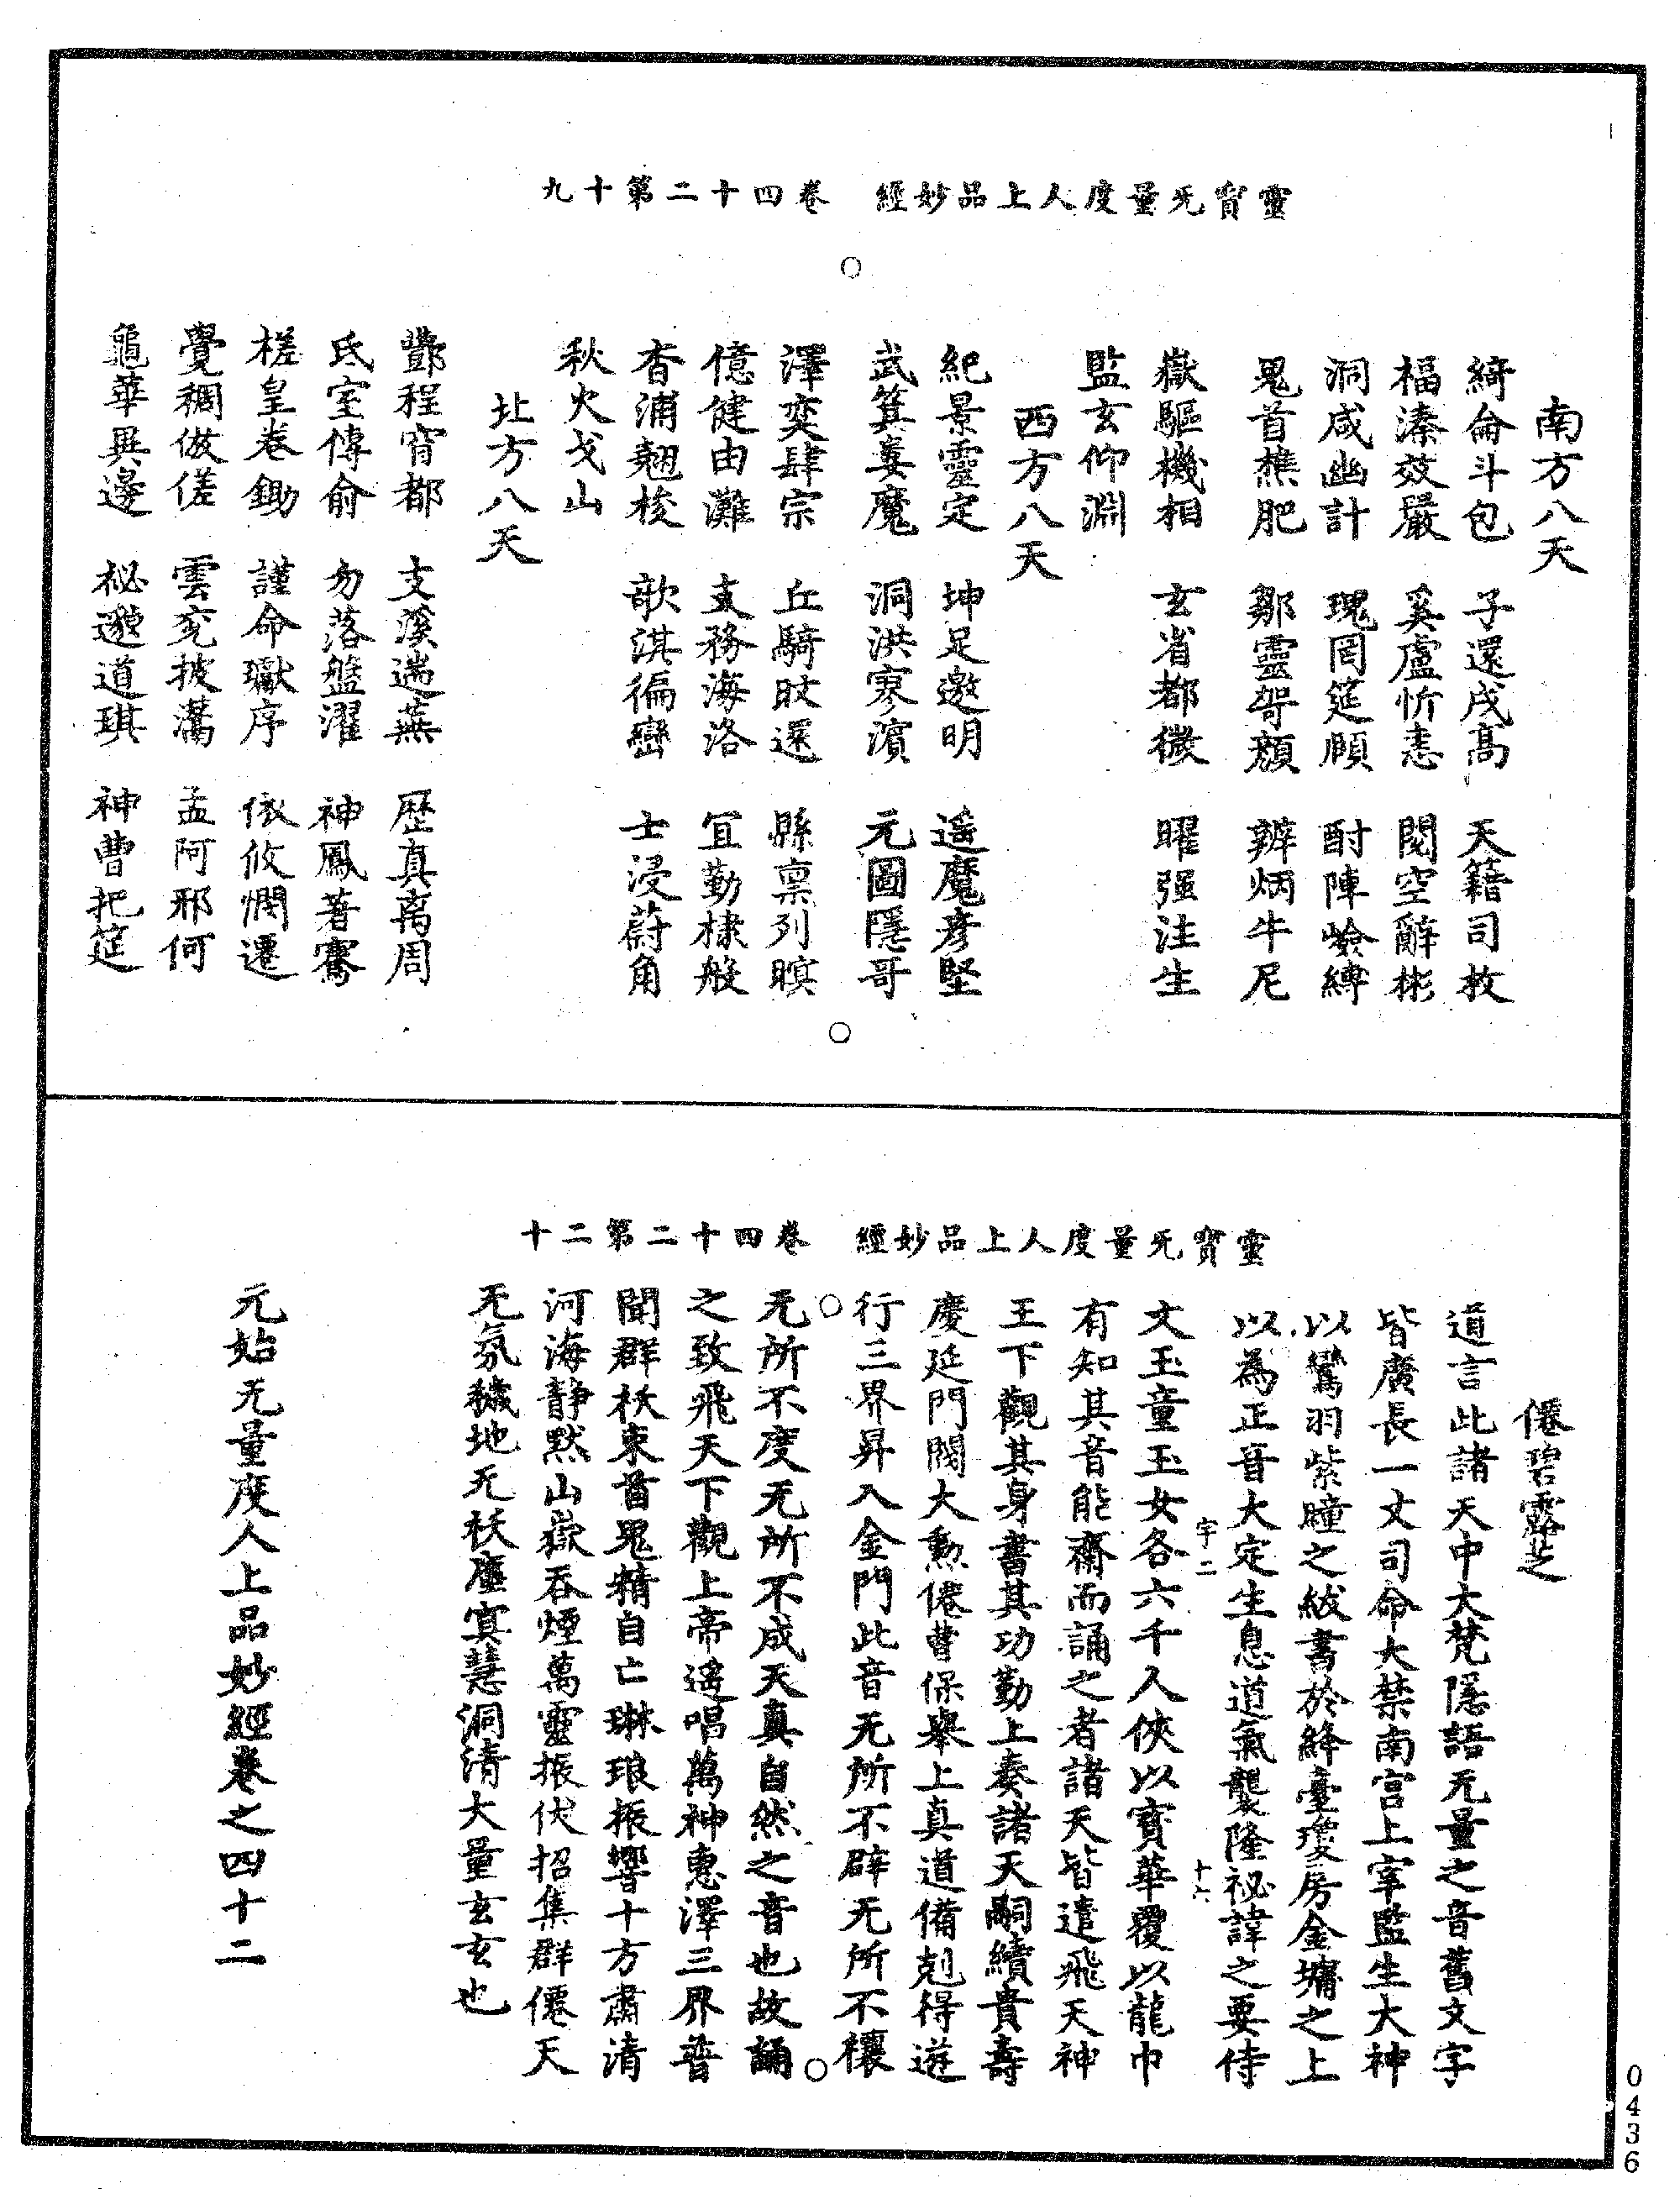 靈寳无量度人上品妙經　卷四十二第十九
南方八天
綺侖斗包　子還戌高　天籍司枚
福溱效嚴　奚盧忻恚　閱空辭彬
洞咸幽計　瑰罔筵頎　酎陣嶮縛
鬼首樵肥　鄒靈㖿頯　辨炳牛尼
嶽驅機相　玄省都微　曜强注生
監玄仰淵
西方八天
紀景靈定　坤足邀明　遥魔彦堅
武箕婁魔　洞洪寥濵　元圖隱哥
澤奕肆宗　丘騎旼還　縣禀列瞑
億健由灘　支務海洛　冝勤棣般
杳浦翹梭　歆淇徧巒　士浸蔚角
秋火戈山
北方八天
酆程宵都　支溪遄蕪　歷真离周
氐室傅俞　勿落盤濯　神鳳著騫
槎皇卷鋤　謹命瓛序　依攸憫遷
覺稠倣傞　雲兖披灊　孟阿邪何
龜華異邊　祕邈道琪　神曹把筵
靈寳无量度人上品妙經　卷四十二第二十
僊碧露芝
道言此諸天中大梵隱語无量之音舊文字
皆廣長一丈司命大禁南宮上宰監生大神
以鸞羽紫瞳之紱書於絳臺瓊房金墉之上
以為正音大定生息道氣襲隆祕諱之要侍
宇二　十六
文玉童玉女各六千人俠以寳華覆以龍巾
有知其音能齋而誦之者諸天皆遣飛天神
王下觀其身書其功勤上奏諸天嗣續貴壽
慶延門閥大勲僊曹保舉上真道備剋得遊
行三界昇入金門此音无所不辟无所不禳
无所不度无所不成天真自然之音也故誦
之致飛天下觀上帝遥唱萬神惠澤三界普
聞群袄束首鬼精自亡琳琅振響十方肅清
河海静默山嶽吞煙萬靈振伏招集群僊天
无氛穢地无袄塵寘慧洞清大量玄玄也
元始无量度人上品妙經卷之四十二
0436